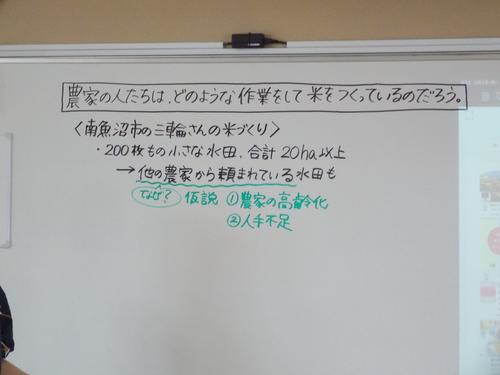 農家の人たちは、どのような作業をして米をつくっているのだろう。
〈南魚沼市の三輪さんの米づくり〉
・200枚もの小さな水田、合計20ha以上
→他の農家から頼まれている水田も
なぜ? 仮説 ①農家の高齢化
②人手不足